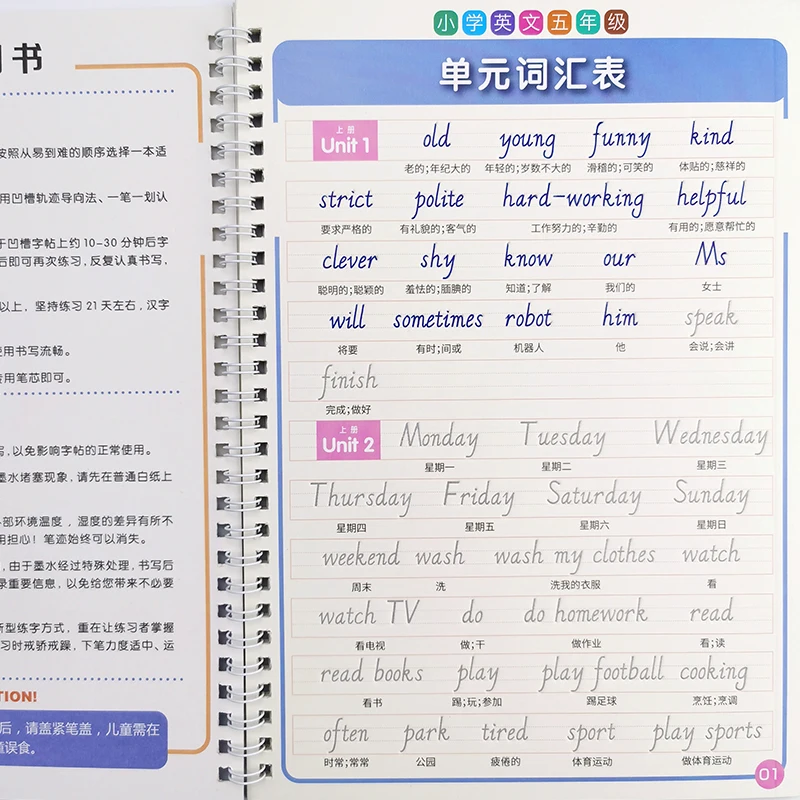 用书
按照从易到难的顺序选择一本适
用凹槽轨迹导向法、一笔一划认
于凹槽字帖上约10-30分钟后字
后即可再次练习,反复认真书写,
以上,坚持练习21天左右,汉字
使用书写流畅。
专用笔芯即可。
写,以免影响字帖的正常使用。
墨水堵塞现象,请先在普通白纸上
外部环境温度,湿度的差异有所不
用担心!笔迹始终可以消失。
,由于墨水经过特殊处理,书写后
录重要信息,以免给您带来不必要
新型练字方式,重在让练习者掌握
习时戒骄戒躁,下笔力度适中、运
TION!
后,请盖紧笔盖,儿童需在
童误食。
小学英文五年级
单元词汇表
上册 Unit 1 old young funny kind
老的;年纪大的 年轻的;岁数不大的 滑稽的;可笑的 体贴的;慈祥的
strict polite hard-working helpful
要求严格的 有礼貌的;客气的 工作努力的;辛勤的 有用的;愿意帮忙的
clever shy know our Ms
聪明的;聪颖的 羞怯的;腼腆的 知道;了解 我们的 女士
will sometimes robot him speak
将要 有时;间或 机器人 他 会说;会讲
finish
完成;做好
上册 Unit 2 Monday Tuesday Wednesday
星期一 星期二 星期三
Thursday Friday Saturday Sunday
星期四 星期五 星期六 星期日
weekend wash wash my clothes watch
周末 洗 洗我的衣服 看
watch TV do do homework read
看电视 做;干 做作业 看;读
read books play play football cooking
看书 踢;玩;参加 踢足球 烹饪;烹调
often park tired sport play sports
时常;常常 公园 疲倦的 体育运动 做体育运动
01